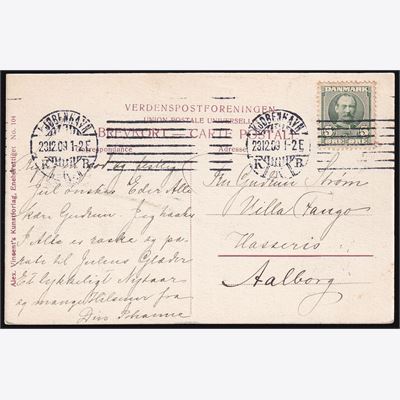 VERDENSPOSTFORENINGEN
UNION POSTALE UNIVERSELLE
BREVKORT — CARTE POSTALE
Correspondance
Adresse
KJØBENHAVN
23.12.09 1-2 E
KJØBENHAVN
23.12.09 1-2 E
DANMARK
5 5
ØRE ØRE
Alex. Vincent's Kunstforlag, Eneberettiget No. 104
og
Jul ønskes Eder Alle
Kære Gudrun Jeg haaber
I Alle er raske og pa-
rate til Julens Glæder
Et lykkeligt Nytaar
og mange Hilsener fra
Din Johanne
Frk Gudrun Strøm
Villa Fangø
Hasseris
Aalborg